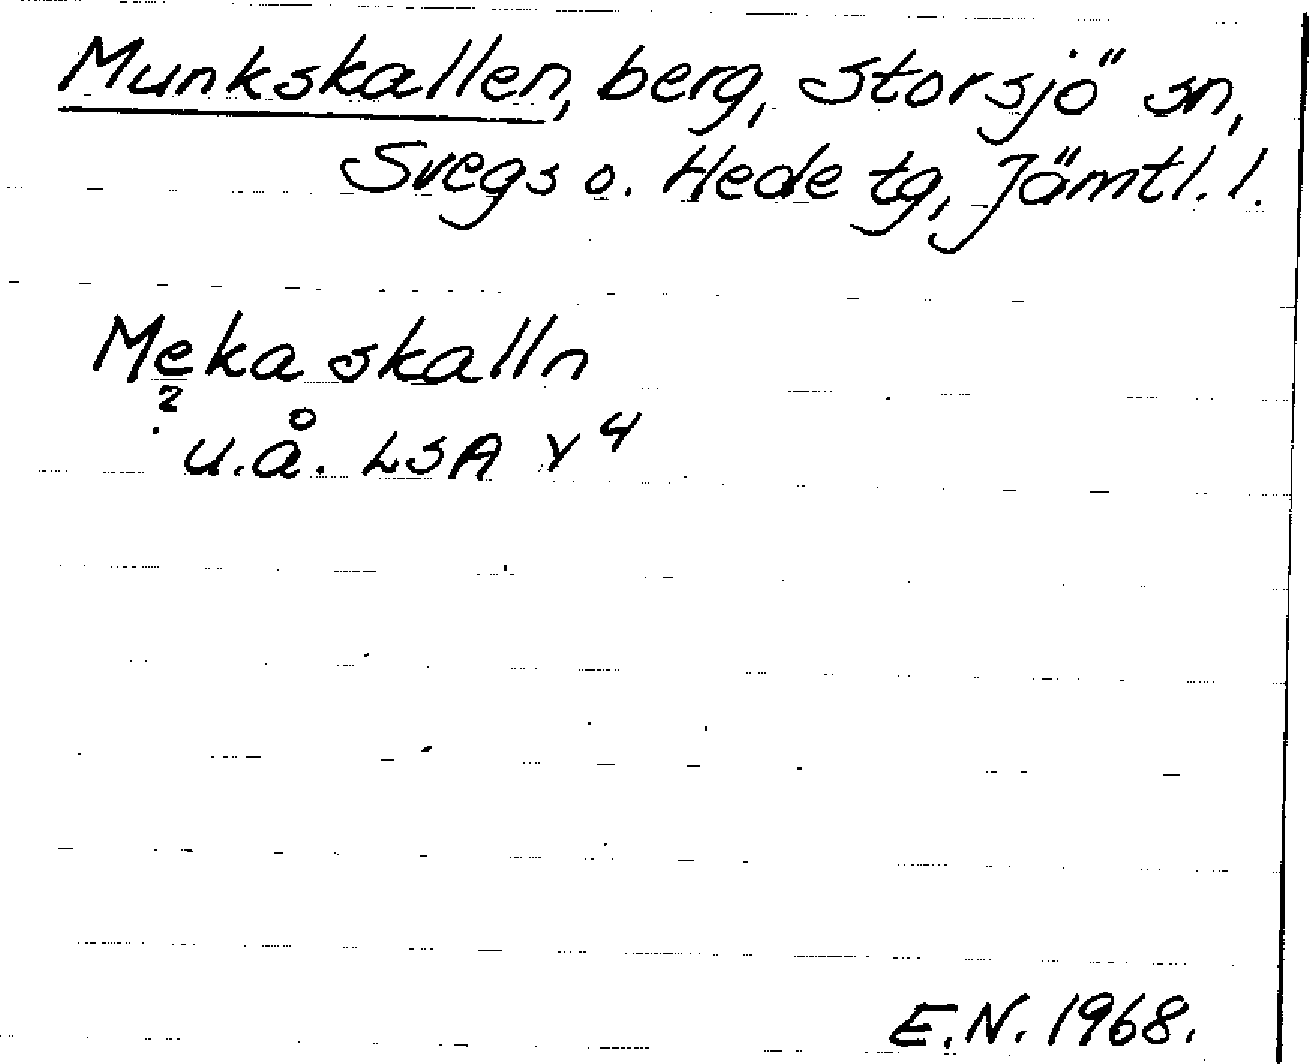 Munkskallen, berg, Storsjö sn,
Svegs o. Hede tg, Jämtl. l.
Meka skalln
?
u.å. LSA Y 4
E.N. 1968.